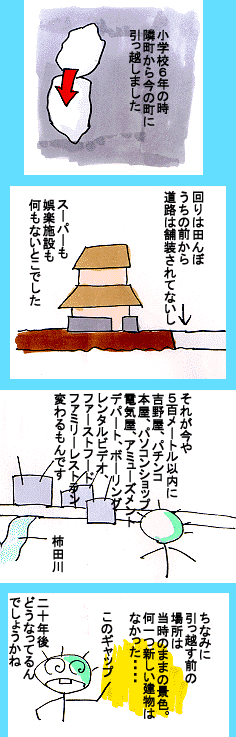 小学校６年の時
隣町から今の町に
引っ越しました
回りは田んぼ
うちの前から
道路は舗装されてないし
スーパーも
娯楽施設も
何もないとこでした
それが今や
５百メートル以内に
吉野屋、パチンコ
本屋、パソコンショップ
電気屋、アミューズメント
デパート、ボーリング
レンタルビデオ
ファーストフード
ファミリーレストラン
変わるもんです
柿田川
ちなみに
引っ越す前の
場所は
当時のままの景色。
何一つ新しい建物は
なかった・・・・
このギャップ
二十年後
どうなってるん
でしょうかね